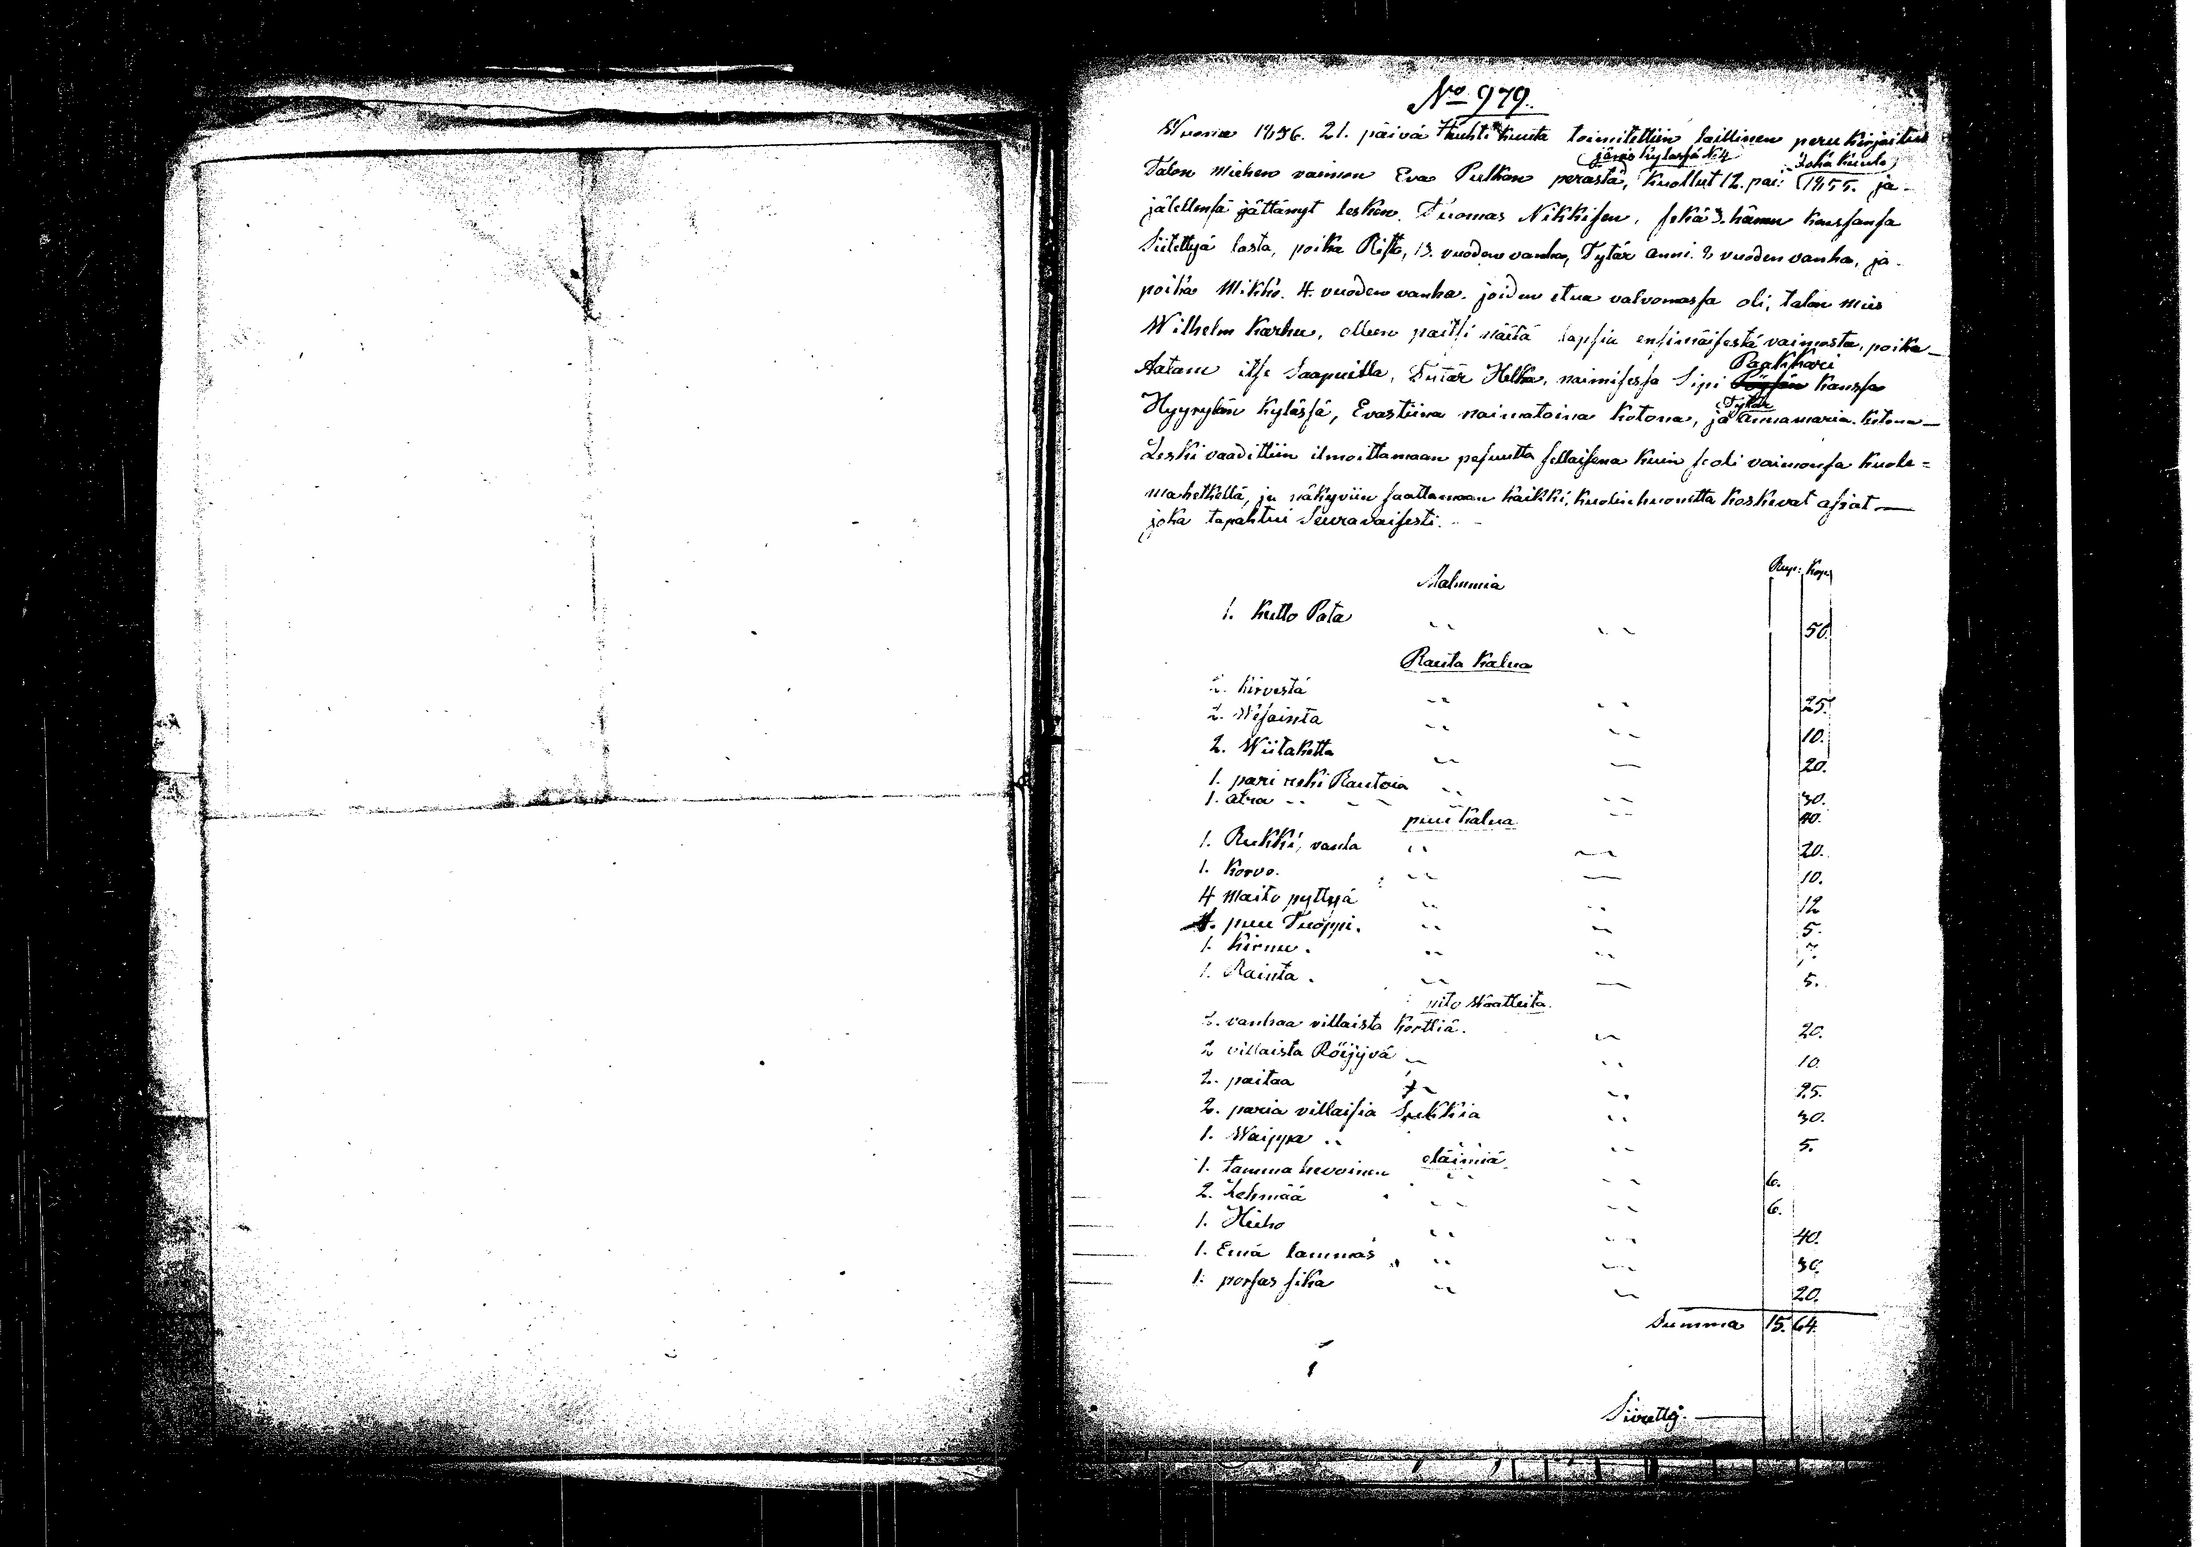 No 979.
Wuona 1856. 21. päivä Huhti kuuta toimitettiin laillinen peru kirjoitus
järvis kylässä N:4 Toukokuuta
Talon miehen vaimon Eva Pulkon perästä, Kuollut 12. päi: 1855. ja
jälellensä jättänyt lesken Tuomas Nikkisen, sekä 3. hänen kanssansa
Siitettyä lasta, poika Risto, 13. vuoden vanha, Tytär Anni. 8 vuoden vanha, ja
poika Mikko. 4. vuoden vanha. joiden etua valvomassa oli, talon mies
Wilhelm Karhu, ollen paitsi näitä lapsia ensimäisestä vaimosta, poika
Paakkari
Aatam itse Saapuilla, Tytär Helka, naimisessa Sipi kanssa
Tytär
Hyyrylän Kylässä, Evastiina naimatoina kotona, ja Annamaria kotona
Leski vaadittiin ilmoittamaan pesuutta sellaisena kuin se oli vaimonsa kuole=
mahetkellä, ja näkyviin saattamaan kaikki, kuolinhuonetta koskevat asiat
joka tapahtui Seuravaisesti.
Rup: Kop.
Malmmia
1. Kullo Pata 50.
Rauta Kalua
2. Kirvestä 25.
2. Wesainta 10.
2. Wiitaketta 20.
1. pari reki Rautoia 30.
1. atra 40.
puu kalua
1. Rukki, vanha 20.
1. Korvo. 10.
4 Maito pyttyä 12
1. puu Tuoppi. 5.
1. Kirnu. 7.
1. Rainta. 5.
pito Waatteita.
2. vanhaa villaista Korttiä. 20.
2 villaista Röijyvä 10.
2. paitaa 25.
2. paria villaisia Sukkia 30.
1. Waippa 5.
eläimiä
1. tamma hevoinen 6.
2. Lehmää 6.
1. Hieho 40.
1. Emä lammas 30.
1. porsas sika 20.
Summa 15. 64.
Siirettä.